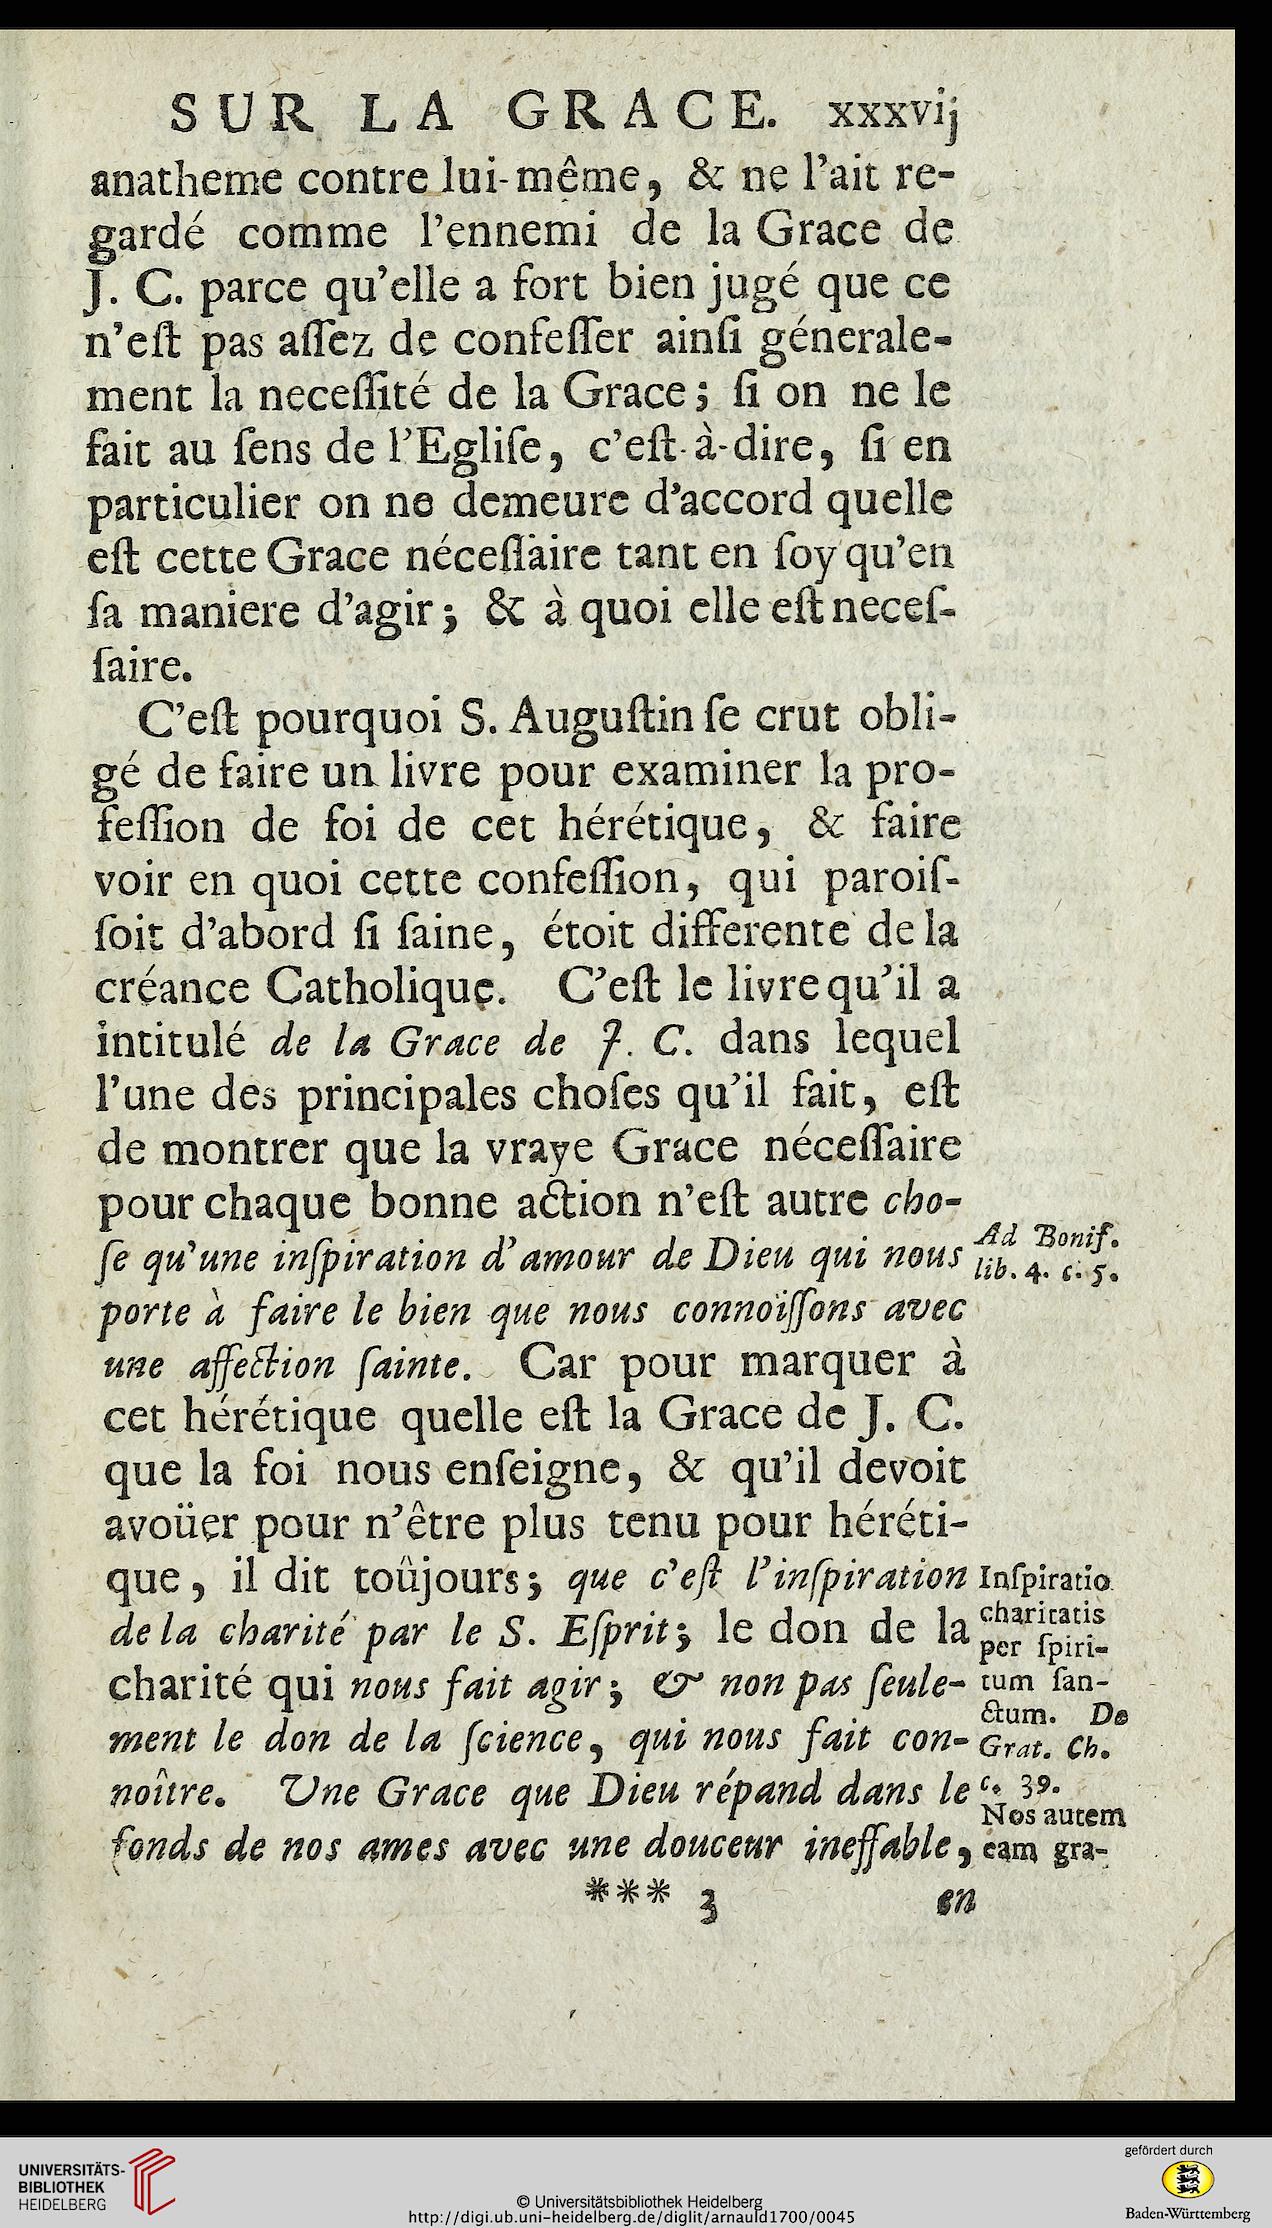 SUR LA GRACE. xxxvij
anatheme contre lui-même, & ne l'ait re-
gardé comme l'ennemi de la Grace de
J. C. parce qu'elle a fort bien jugé que ce
n'eſt pas aſſez de confeſſer ainſi génerale-
ment la neceſſité de la Grace; ſi on ne le
fait au ſens de l'Egliſe, c'eſt-à-dire, ſi en
particulier on ne demeure d'accord quelle
eſt cette Grace néceſſaire tant en ſoy qu'en
ſa maniere d'agir; & à quoi elle eſt neceſ-
ſaire.
C'eſt pourquoi S. Auguſtin ſe crut obli-
gé de faire un livre pour examiner la pro-
feſſion de foi de cet hérétique, & faire
voir en quoi cette confeſſion, qui paroiſ-
ſoit d'abord ſi ſaine, étoit differente de la
créance Catholique. C'eſt le livre qu'il a
intitulé de la Grace de J. C. dans lequel
l'une des principales choſes qu'il fait, eſt
de montrer que la vraye Grace néceſſaire
pour chaque bonne action n'eſt autre cho-
ſe qu'une inſpiration d'amour de Dieu qui nous
porte à faire le bien que nous connoiſſons avec
une affection ſainte. Car pour marquer à
cet hérétique quelle eſt la Grace de J. C.
que la foi nous enſeigne, & qu'il devoit
avoüer pour n'être plus tenu pour héréti-
que, il dit toûjours; que c'eſt l'inſpiration
de la charité par le S. Eſprit; le don de la
charité qui nous fait agir; & non pas ſeule-
ment le don de la ſcience, qui nous fait con-
noître. Une Grace que Dieu répand dans le
fonds de nos ames avec une douceur ineffable,
*** 3 en
Ad Bonif.
lib. 4. c. 5.
Inſpiratio
charitatis
per ſpiri-
tum ſan-
ctum. De
Grat. Ch.
c. 39.
Nos autem
eam gra-
UNIVERSITÄTS-
BIBLIOTHEK
HEIDELBERG
© Universitätsbibliothek Heidelberg
http://digi.ub.uni-heidelberg.de/diglit/arnauld1700/0045
gefördert durch
Baden-Württemberg